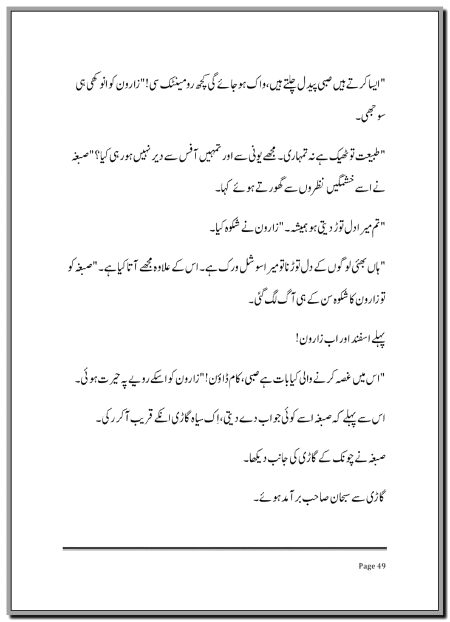 "ایسا کرتے ہیں صبی پیدل چلتے ہیں، واک ہو جائے گی کچھ رومینٹک سی!" زارون کو انوکھی ہی
سوجھی۔
"طبیعت تو ٹھیک ہے نہ تمہاری۔ مجھے یونی سے اور تمہیں آفس سے دیر نہیں ہو رہی کیا؟" صبغہ
نے اسے خشمگیں نظروں سے گھورتے ہوئے کہا۔
"تم میرا دل توڑ دیتی ہو ہمیشہ۔" زارون نے شکوہ کیا۔
"ہاں بھئی لوگوں کے دل توڑنا تو میرا سوشل ورک ہے۔ اس کے علاوہ مجھے آتا کیا ہے۔" صبغہ کو
تو زارون کا شکوہ سن کے ہی آگ لگ گئی۔
پہلے اسفند اور اب زارون!
"اس میں غصہ کرنے والی کیا بات ہے صبی، کام ڈاؤن!" زارون کو اسکے رویے پہ حیرت ہوئی۔
اس سے پہلے کہ صبغہ اسے کوئی جواب دے دیتی، اِک سیاہ گاڑی انکے قریب آ کر رکی۔
صبغہ نے چونک کے گاڑی کی جانب دیکھا۔
گاڑی سے سبحان صاحب برآمد ہوئے۔
Page 49